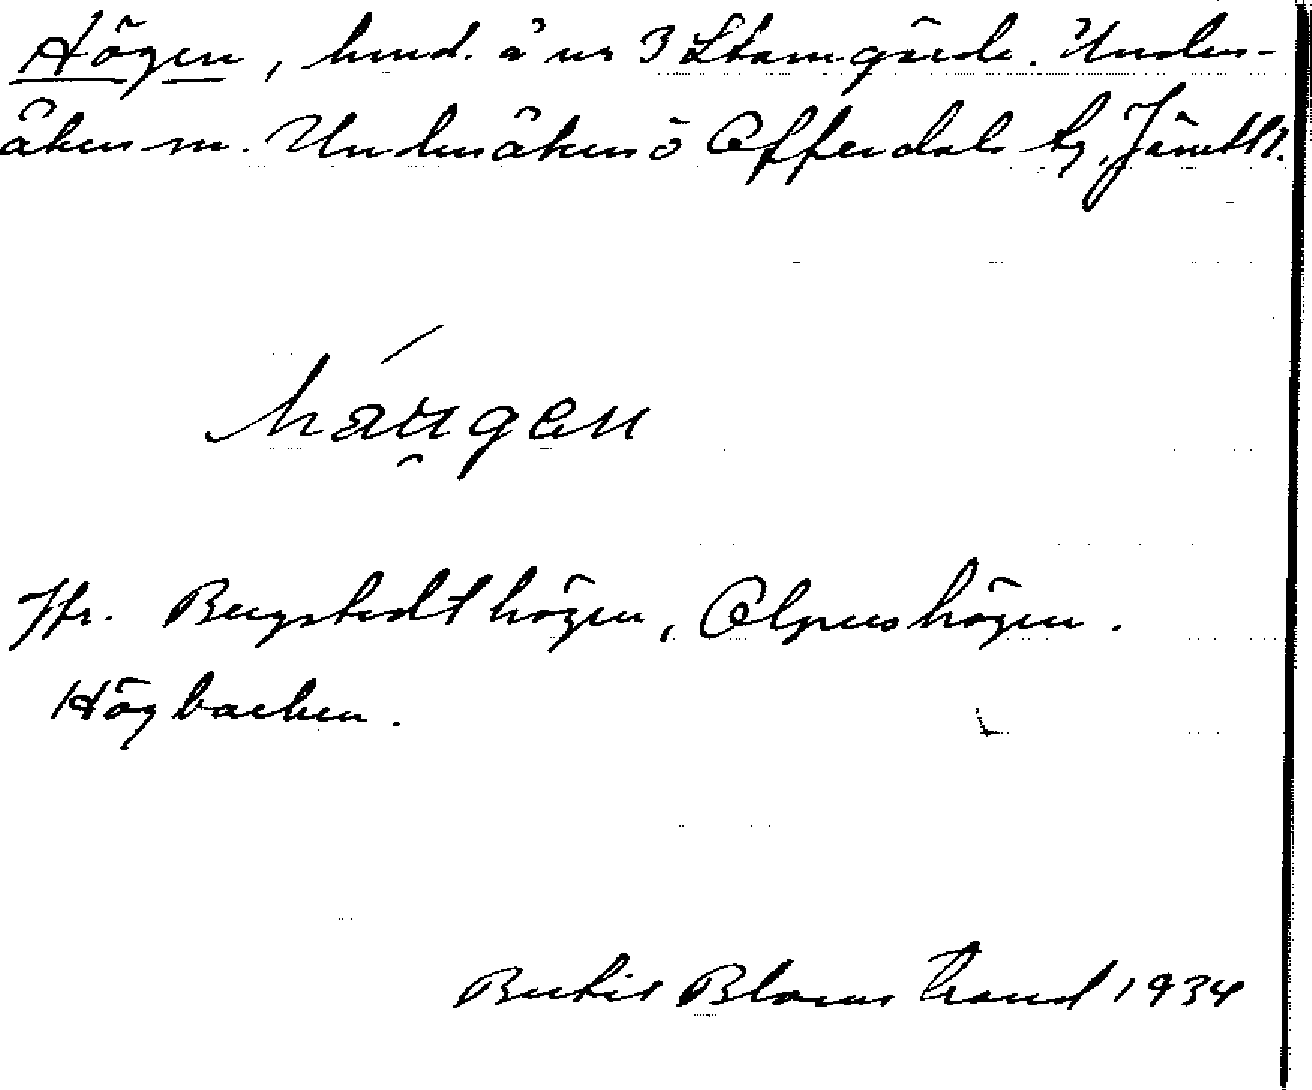 Högen, hmd. å nr 3 Stamgärde. Unders-
åkers sn. Undersåkers o Offerdals tg, Jämtl.
háu̯gen
Jfr. Bergstedthögen, Olpershögen.
Högbacken.
Bertil Blomstrand 1934